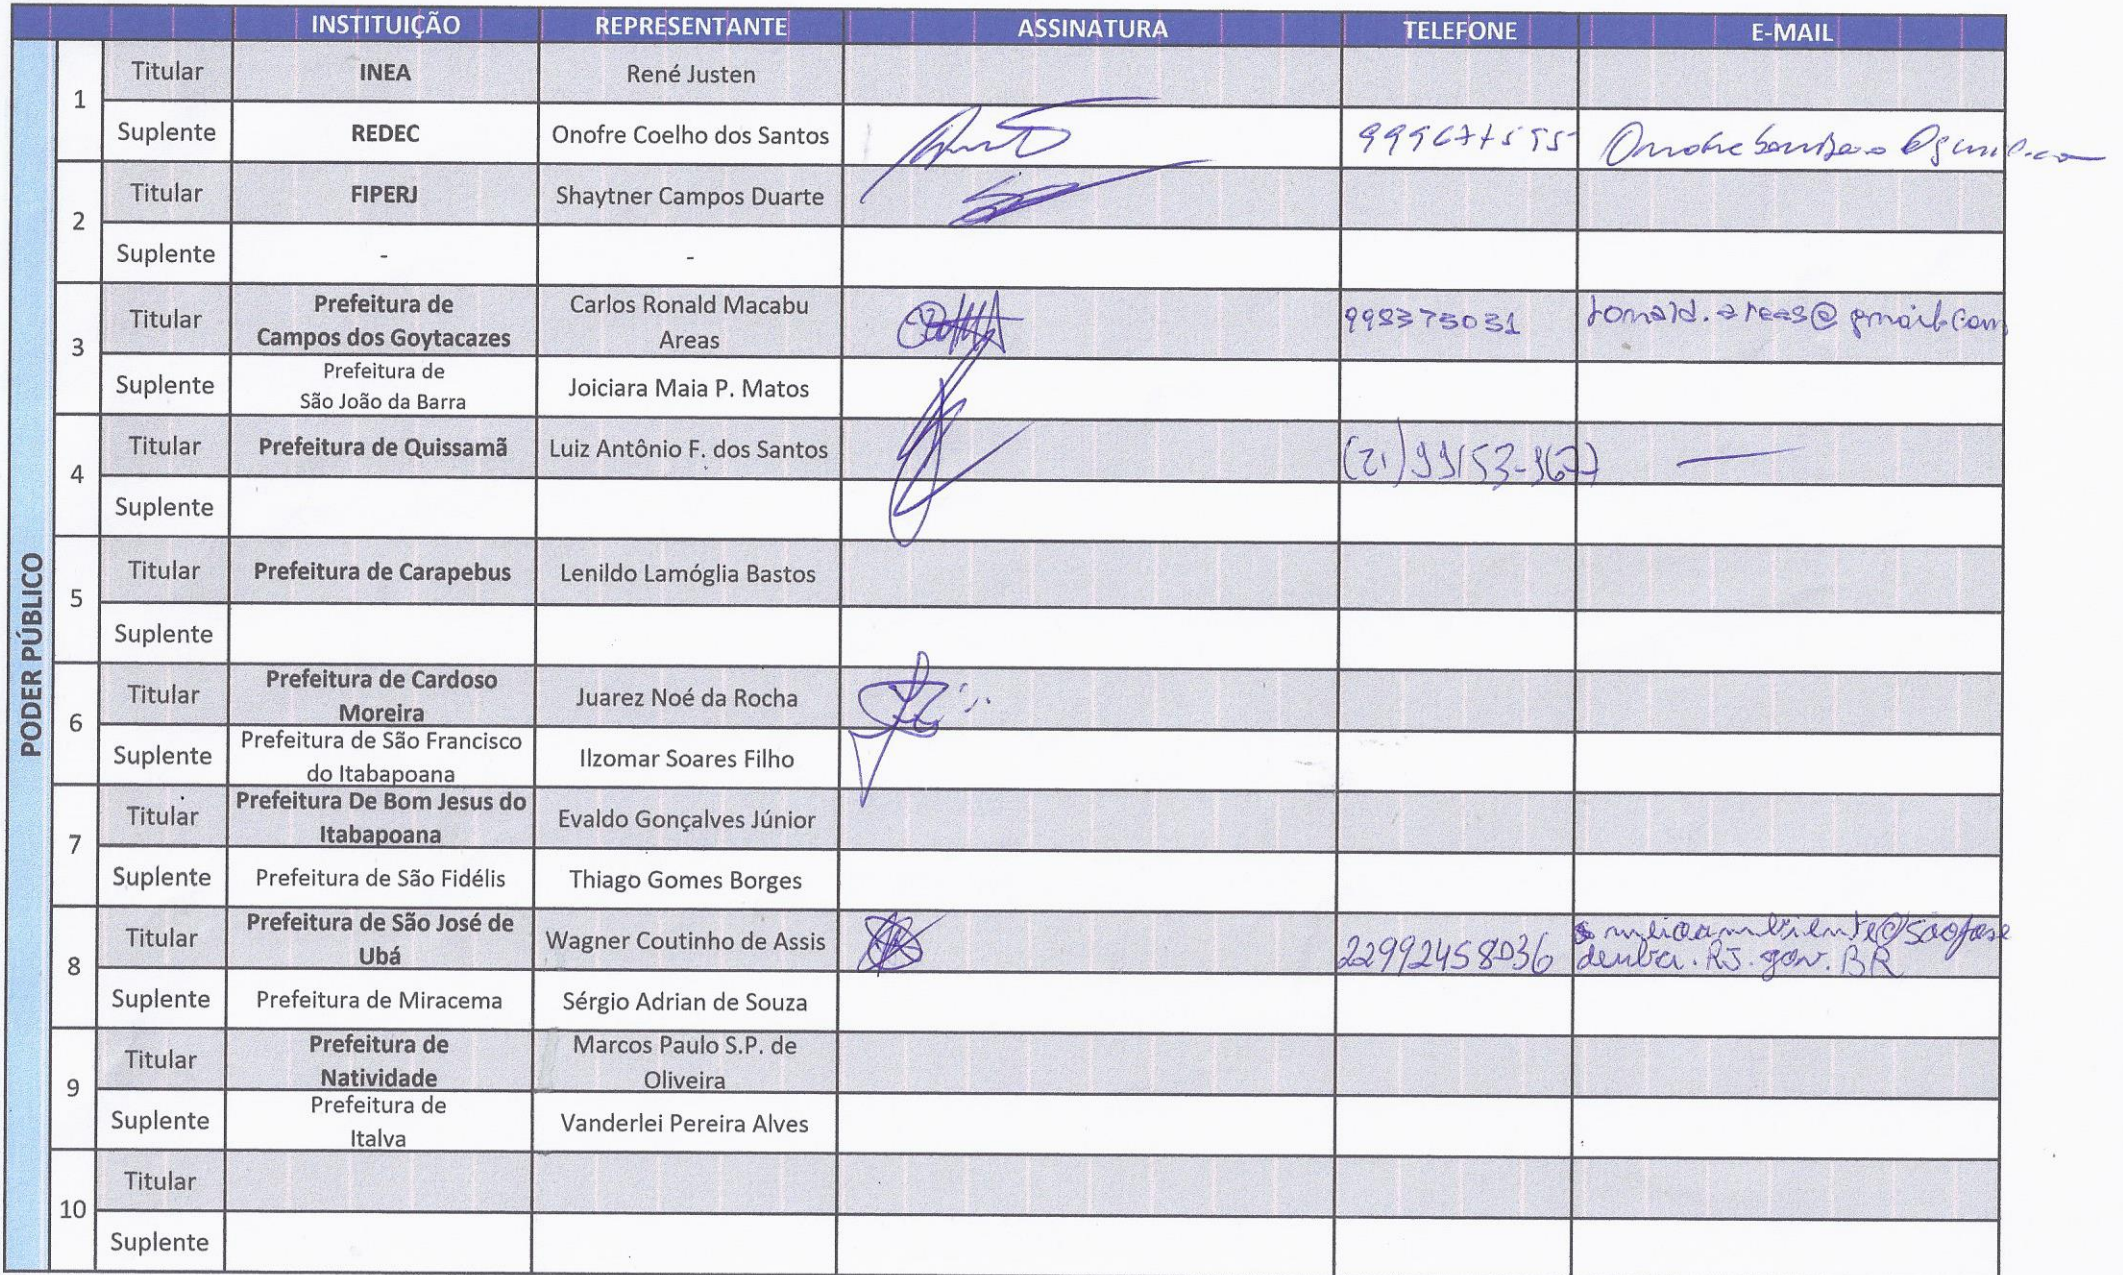 INSTITUIÇÃO REPRESENTANTE ASSINATURA TELEFONE E-MAIL
PODER PÚBLICO
1
Titular INEA René Justen
Suplente REDEC Onofre Coelho dos Santos
2
Titular FIPERJ Shaytner Campos Duarte
Suplente - -
3
Titular Prefeitura de
Campos dos Goytacazes Carlos Ronald Macabu
Areas 998375031 ronald.areas@gmail.com
Suplente Prefeitura de
São João da Barra Joiciara Maia P. Matos
4
Titular Prefeitura de Quissamã Luiz Antônio F. dos Santos —
Suplente
5
Titular Prefeitura de Carapebus Lenildo Lamóglia Bastos
Suplente
6
Titular Prefeitura de Cardoso
Moreira Juarez Noé da Rocha
Suplente Prefeitura de São Francisco
do Itabapoana Ilzomar Soares Filho
7
Titular Prefeitura De Bom Jesus do
Itabapoana Evaldo Gonçalves Júnior
Suplente Prefeitura de São Fidélis Thiago Gomes Borges
8
Titular Prefeitura de São José de
Ubá Wagner Coutinho de Assis 22992458036 meioambiente@saojose
deuba.RJ.gov.BR
Suplente Prefeitura de Miracema Sérgio Adrian de Souza
9
Titular Prefeitura de
Natividade Marcos Paulo S.P. de
Oliveira
Suplente Prefeitura de
Italva Vanderlei Pereira Alves
10
Titular
Suplente